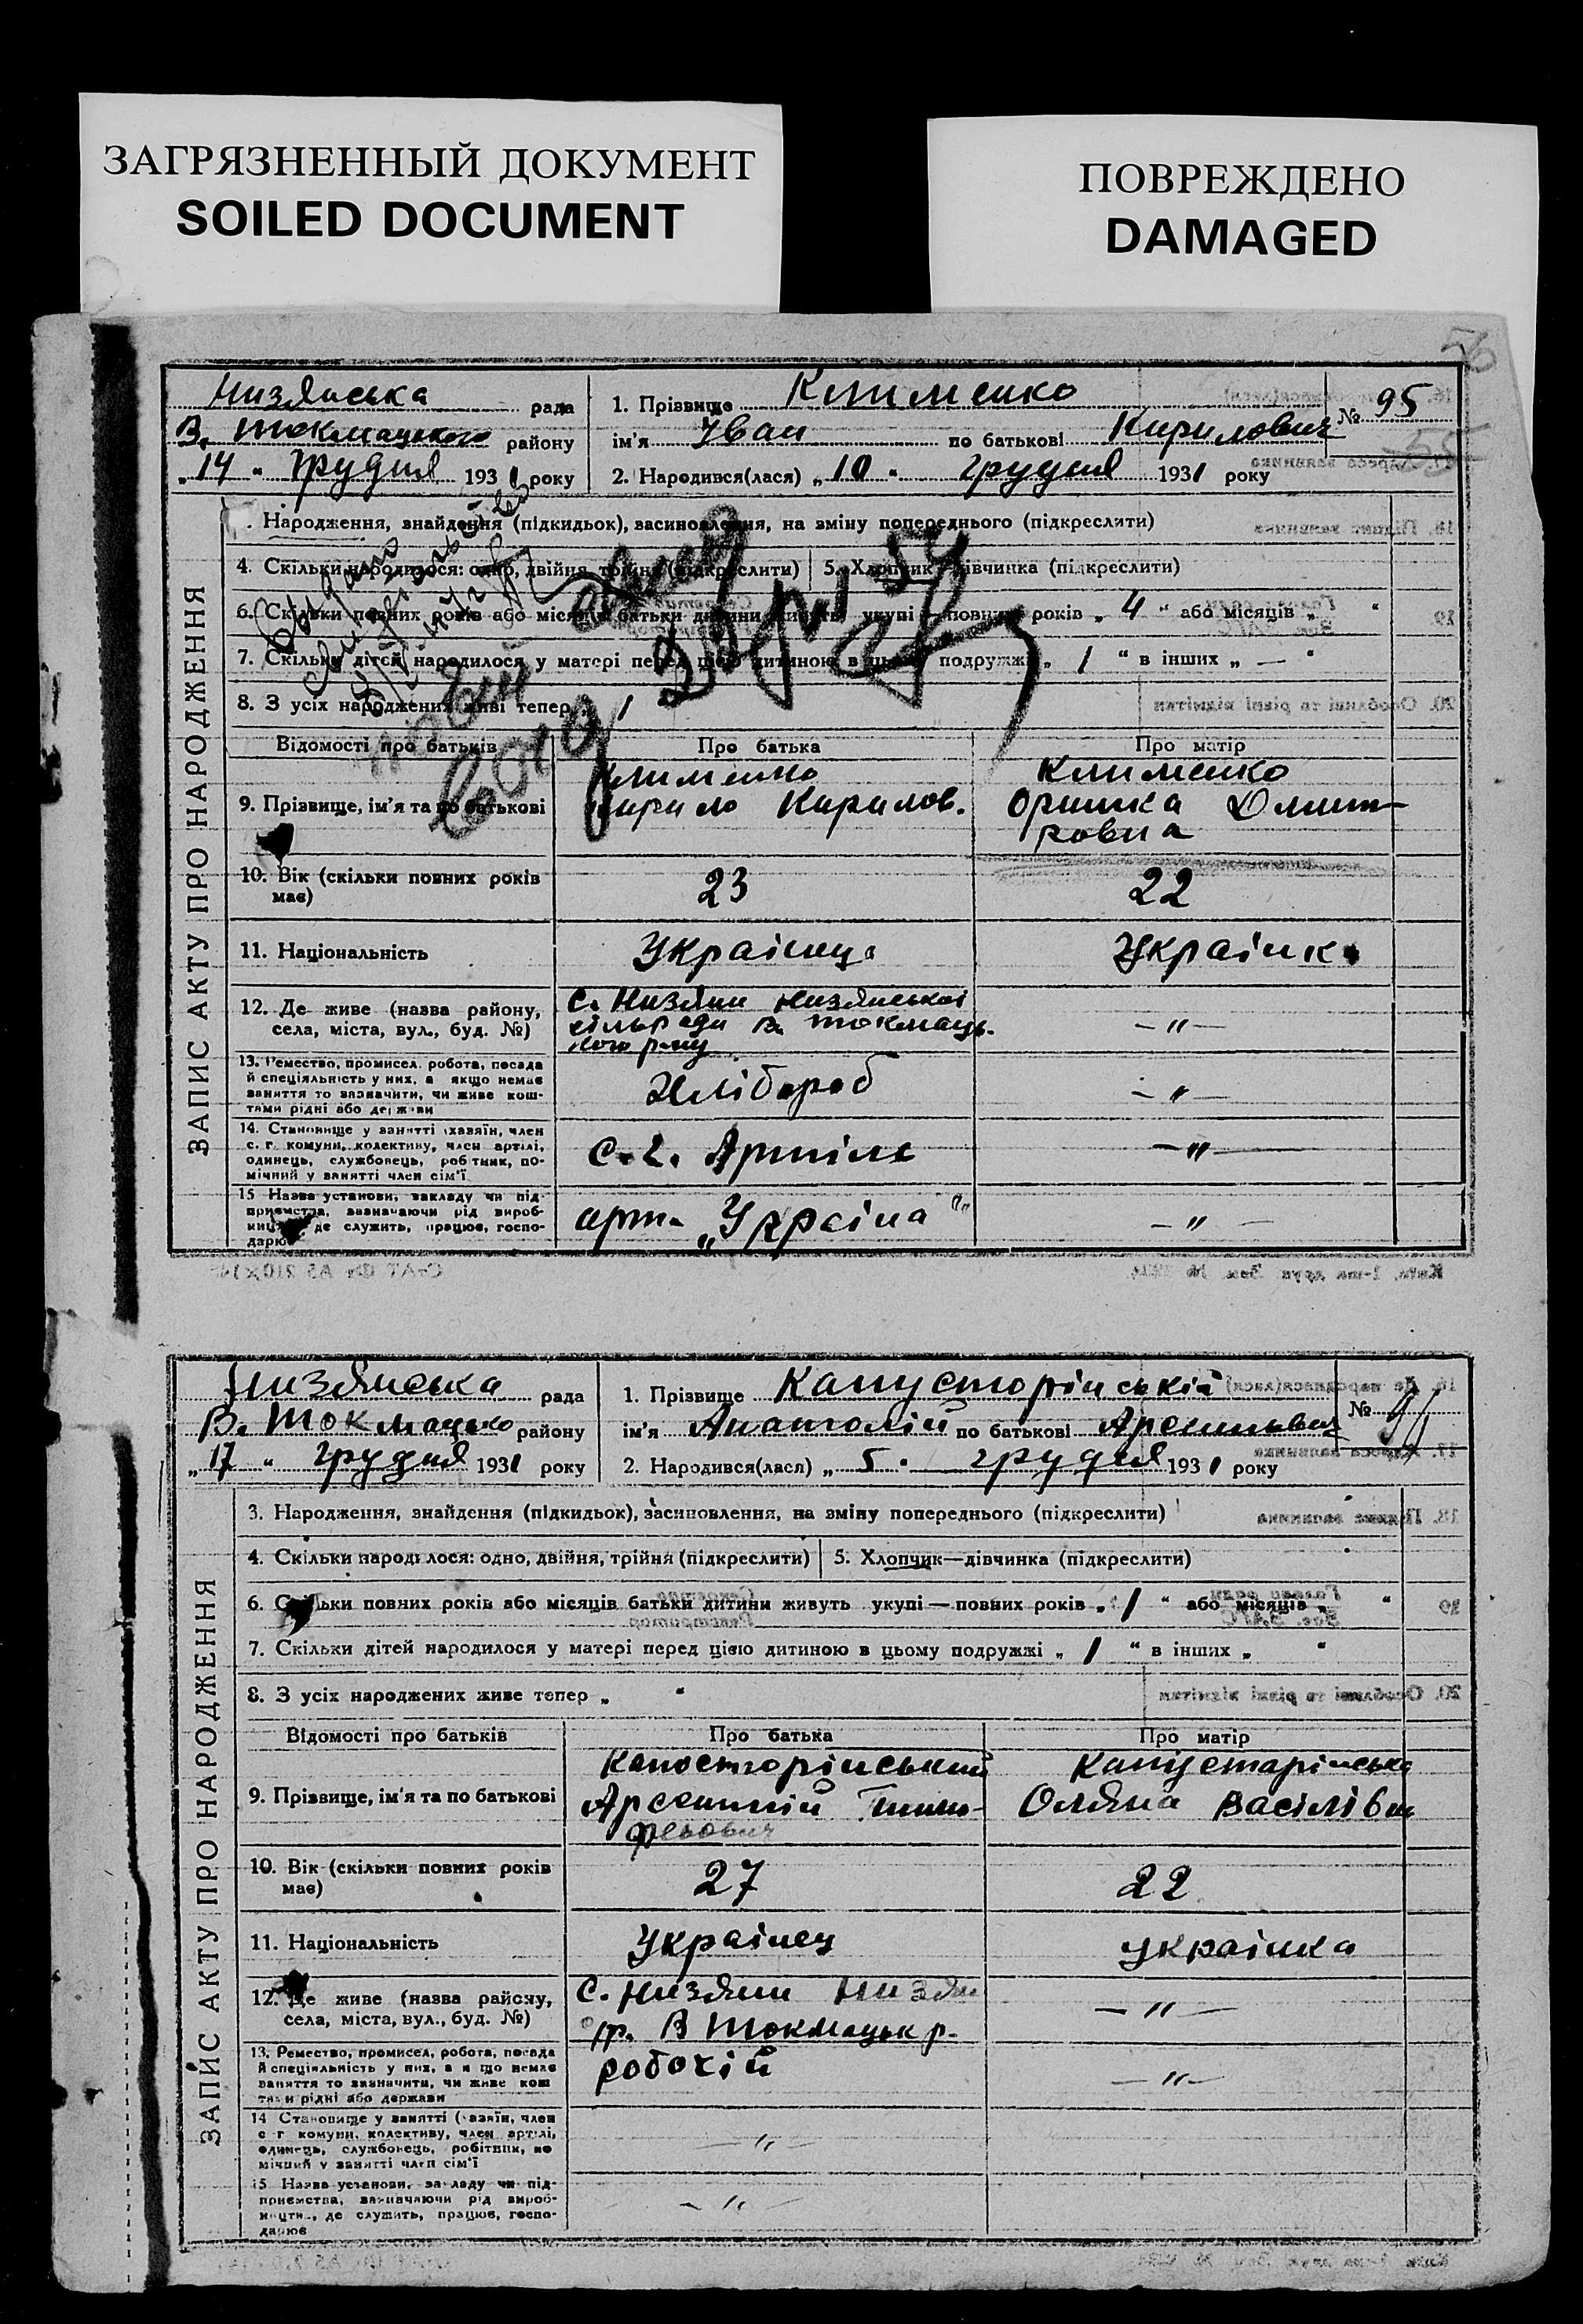 ЗАГРЯЗНЕННЫЙ ДОКУМЕНТ
SOILED DOCUMENT
ПОВРЕЖДЕНО
DAMAGED
56
Низянська рада
В. Токмацького району
„14“ грудня 1931 року
1. Прізвище Клименко
ім'я Іван по батькові Кирилович
№ 95
2. Народився(лася) „10“ грудня 1931 року
ЗАПИС АКТУ ПРО НАРОДЖЕННЯ
. Народження, знайдення (підкидьок), засиновлення, на зміну попереднього (підкреслити)
4. Скільки народилося: одно, двійня, трійня (підкреслити) 5. Хлопчик дівчинка (підкреслити)
6. Скільки повних років або місяців батьки дитини живуть укупі — повних років „ 4 “ або місяців „ “
7. Скільки дітей народилося у матері перед цією дитиною в цьому подружжі „ 1 “ в інших „ — “
8. З усіх народжених живі тепер „ 1
Відомості про батьків Про батька Про матір
9. Прізвище, ім'я та по батькові
Клименко
Кирило Кирилов.
Клименко
Оришка Дмит-
ровна
10. Вік (скільки повних років має) 23 22
11. Національність Українец Українк
12. Де живе (назва району, села, міста, вул., буд. №)
с. Низяни Низянської
сільради В. Токмаць-
кого р-ну
— " —
13. Ремество, промисел, робота, посада
й спеціяльність у них, а якщо немає
заняття то зазначити, чи живе кош-
тами рідні або держави
Хлібороб — " —
14. Становище у занятті (хазяїн, член
с. г. комуни, колективу, член артілі,
одинець, службовець, робітник, по-
мічний у занятті член сім'ї
с.г. Артіль — " —
15 Назва установи, закладу чи під-
приємства, зазначаючи рід вироб-
ницт де служить, працює, госпо-
дарює
арт. „Україна“ — " —
Низянська рада
В. Токмацько району
„17“ грудня 1931 року
1. Прізвище Капусторінській
ім'я Анатолій по батькові
№
2. Народився(лася) „5“ грудня 1931 року
ЗАПИС АКТУ ПРО НАРОДЖЕННЯ
3. Народження, знайдення (підкидьок), засиновлення, на зміну попереднього (підкреслити)
4. Скільки народилося: одно, двійня, трійня (підкреслити) 5. Хлопчик—дівчинка (підкреслити)
6. Скільки повних років або місяців батьки дитини живуть укупі — повних років „ 1 “ або місяців „ “
7. Скільки дітей народилося у матері перед цією дитиною в цьому подружжі „ 1 “ в інших „ “
8. З усіх народжених живе тепер „ “
Відомості про батьків Про батька Про матір
9. Прізвище, ім'я та по батькові
Капосторінський
Арсентій Тимо-
фейович
Капустарінська
Оляна Васілівн
10. Вік (скільки повних років має) 27 22
11. Національність Українец українка
12. Де живе (назва району, села, міста, вул., буд. №)
С. Низяни Низян
В Токмацьк р.
— " —
13. Ремество, промисел, робота, посада
й спеціяльність у них, а якщо немає
заняття то зазначити, чи живе кош
тами рідні або держави
робочій — " —
14 Становище у занятті (хазяїн, член
с г комуни, колективу, член артілі,
одинець, службовець, робітник, по
мічний у занятті член сім'ї
— " —
15 Назва установи, закладу чи під-
приємства, зазначаючи рід вироб-
ництв, де служить, працює, госпо-
дарює
— " —